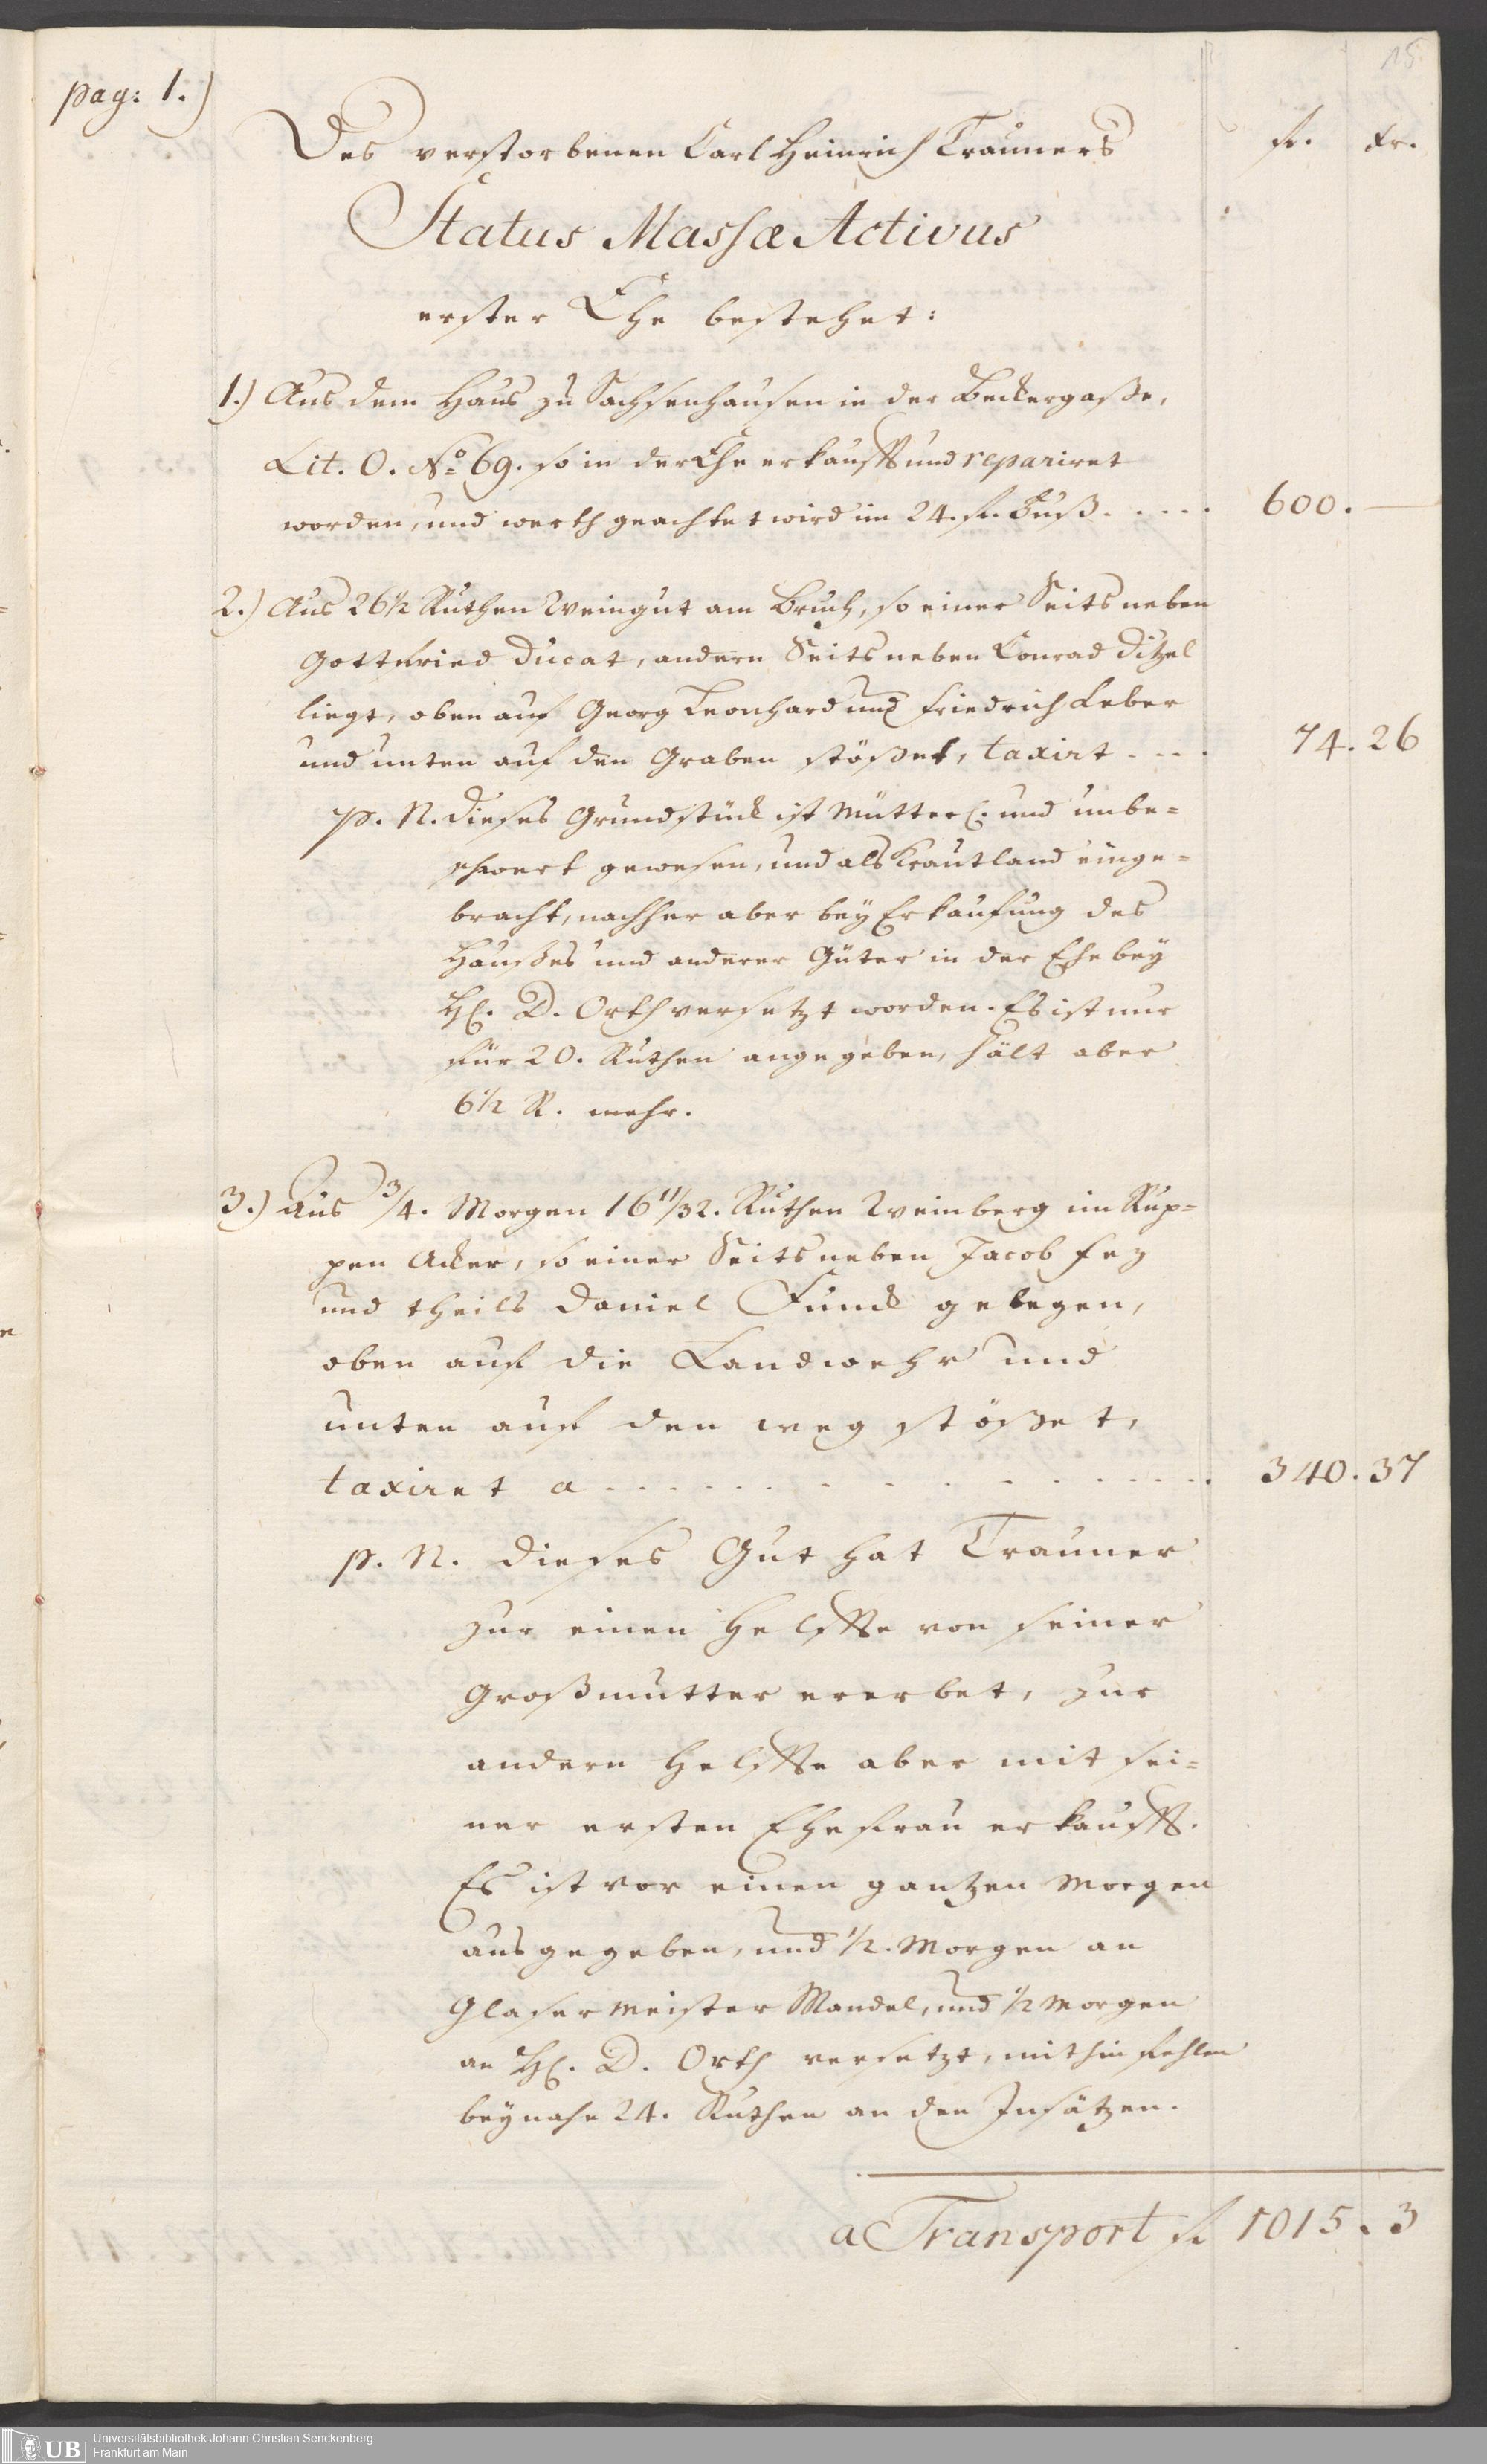 15
pag: 1.)
fl. xr.
Des verstorbenen Carl Heinrich Trauners
Status Massæ Activus
erster Ehe bestehet:
1.) Aus dem Haus zu Sachsenhausen in der Beckergaße,
Lit. O. No 69. so in der Ehe erkaufft und repariret
worden, und werth geachtet wird im 24. fl. Fuß. . . . . 600. —
2.) Aus 26 1/2 Ruthen Weingut am Bruch, so einer Seits neben
Gottfried Ducat, andern Seits neben Conrad Ditzel
liegt, oben auf Georg Leonhard und Friedrich Leber
und unten auf den Graben stößet, taxirt . . . . 74. 26
p. N. dieses Grundstück ist Mütterl. und unbe=
schwert gewesen, und als Krautland einge=
bracht, nachher aber bey Erkaufung des
Haußes und anderer Güter in der Ehe bey
H. D. Orth versetzt worden. Es ist nur
für 20. Ruthen angegeben, hält aber
6 1/2 R. mehr.
3.) Aus 3/4. Morgen 16 11/32. Ruthen Weinberg im Rup=
pen Acker, so einer Seits neben Jacob Fez
und theils Daniel Funck gelegen,
oben auf die Landwehr und
unten auf den weg stößet,
taxiret a . . . . . . . . . . . . . . 340. 37
p. N. dieses Gut hat Trauner
zur einen Helffte von seiner
Großmutter ererbet, zur
andern Helffte aber mit sei=
ner ersten Ehefrau erkaufft.
Es ist vor einen gantzen Morgen
ausgegeben, und 1/2. Morgen an
Glasermeister Mandel, und 1/2 Morgen
an H. D. Orth versetzt, mithin fehlen
beynahe 24. Ruthen an den Insätzen.
a Transport fl 1015. 3
UB
Universitätsbibliothek Johann Christian Senckenberg
Frankfurt am Main